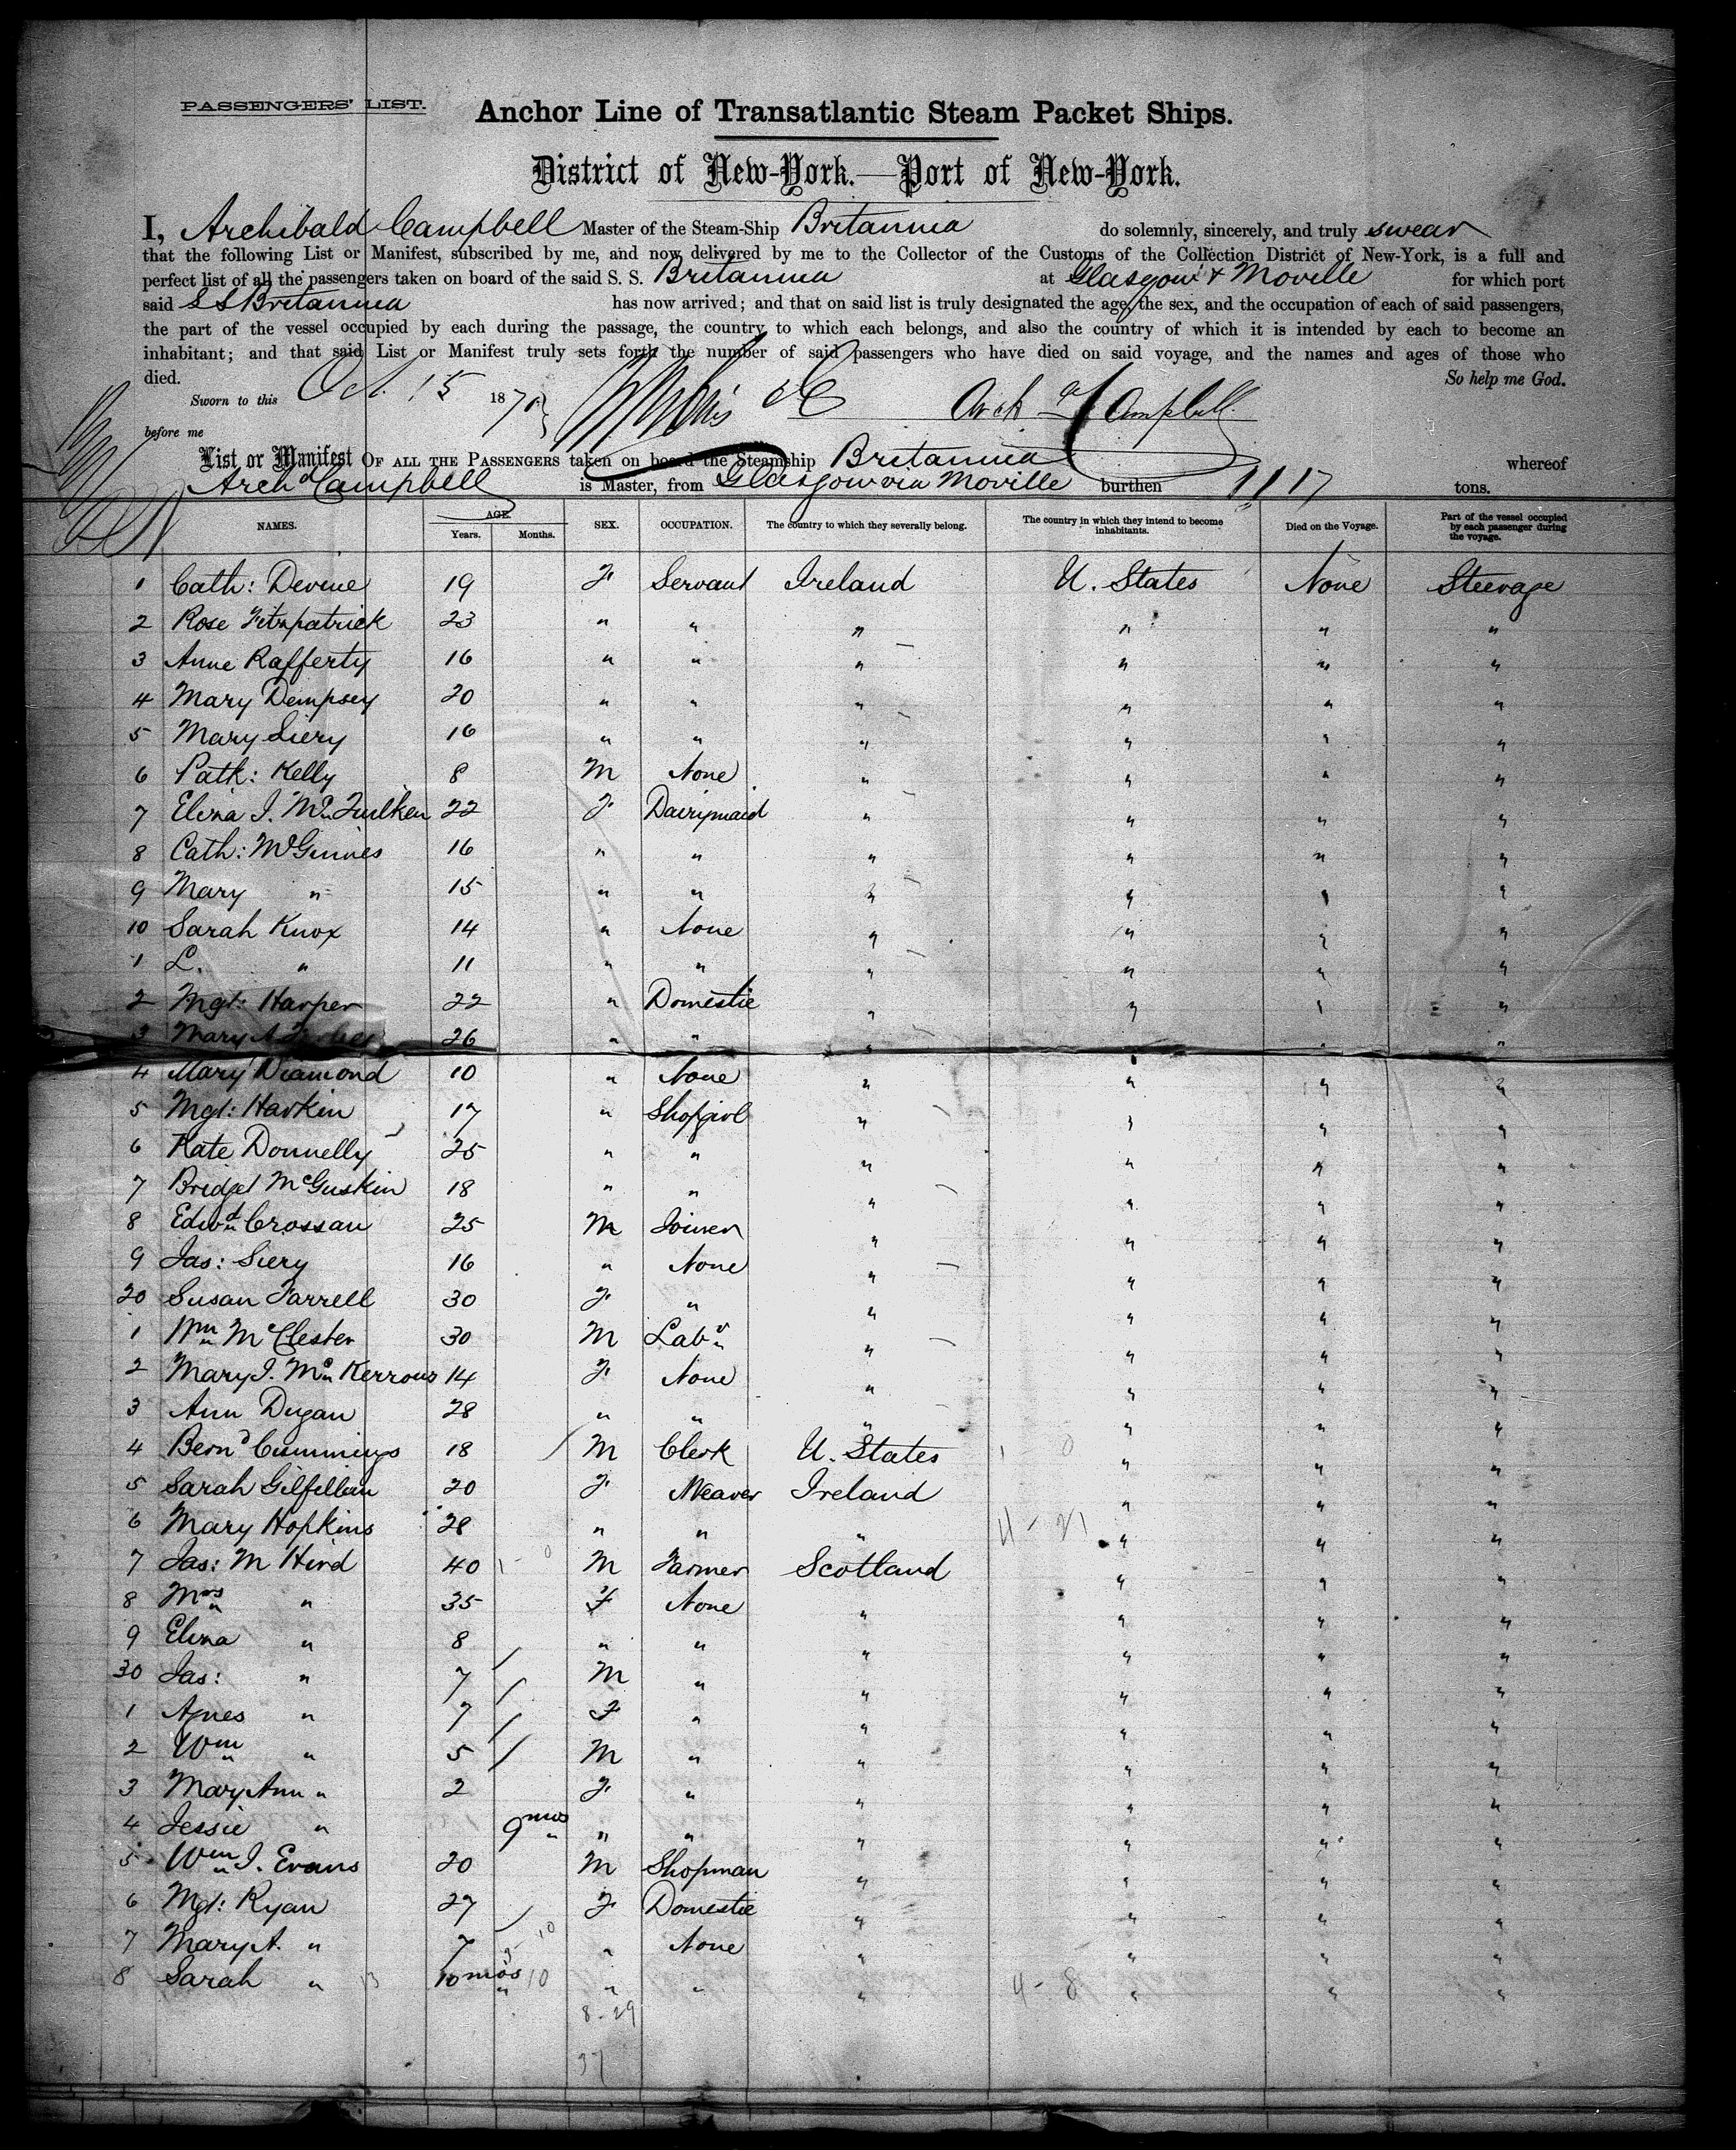 PASSENGERS' LIST.
Anchor Line of Transatlantic Steam Packet Ships.
District of New-York.—Port of New-York.
I, Archibald Campbell Master of the Steam-Ship Britannia do solemnly, sincerely, and truly swear
that the following List or Manifest, subscribed by me, and now delivered by me to the Collector of the Customs of the Collection District of New-York, is a full and
perfect list of all the passengers taken on board of the said S. S. Britannia at Glasgow & Moville for which port
said S S Britannia has now arrived; and that on said list is truly designated the age, the sex, and the occupation of each of said passengers,
the part of the vessel occupied by each during the passage, the country to which each belongs, and also the country of which it is intended by each to become an
inhabitant; and that said List or Manifest truly sets forth the number of said passengers who have died on said voyage, and the names and ages of those who
died. So help me God.
Sworn to this Oct. 15 1870 Arch d Campbell
before me
List or Manifest OF ALL THE PASSENGERS taken on board the Steamship Britannia whereof
Arch d Campbell is Master, from Glasgow via Moville burthen 1117 tons.
NAMES. AGE. Years. Months. SEX. OCCUPATION. The country to which they severally belong. The country in which they intend to become inhabitants. Died on the Voyage. Part of the vessel occupied by each passenger during the voyage.
1 Cath: Devine 19 F Servant Ireland U. States None Steerage
2 Rose Fitzpatrick 23 " " " " " "
3 Anne Rafferty 16 " " " " " "
4 Mary Dempsey 20 " " " " " "
5 Mary Siery 16 " " " " " "
6 Patk: Kelly 8 M None " " " "
7 Eliza J. Mc Quilken 22 F Dairymaid " " " "
8 Cath: McGinnes 16 " " " " " "
9 Mary " 15 " " " " " "
10 Sarah Knox 14 " None " " " "
1 L. " 11 " " " " " "
2 Mgt: Harper 22 " Domestic " " " "
3 Mary A 26 " " " " " "
4 Mary Diamond 10 " None " " " "
5 Mgt: Harkin 17 " Shopgirl " " " "
6 Kate Donnelly 25 " " " " " "
7 Bridget McGuskin 18 " " " " " "
8 Edwd Crossan 25 M Joiner " " " "
9 Jas: Siery 16 " None " " " "
20 Susan Farrell 30 F " " " " "
1 Wm McClester 30 M Labr " " " "
2 Mary J. Mc Kerrow 14 F None " " " "
3 Ann Dugan 28 " " " " " "
4 Bernd Cummings 18 M Clerk U. States " " "
5 Sarah Gilfillan 20 F Weaver Ireland " " "
6 Mary Hopkins 28 " " " " " "
7 Jas: M Hird 40 M Farmer Scotland " " "
8 Mrs " 35 F None " " " "
9 Eliza " 8 " " " " " "
30 Jas: " 7 M " " " " "
1 Agnes " 7 F " " " " "
2 Wm " 5 M " " " " "
3 Mary Ann " 2 F " " " " "
4 Jessie " 9 mos " " " " " "
5 Wm J. Evans 20 M Shopman " " " "
6 Mgt: Ryan 27 F Domestic " " " "
7 Mary A. " 7 " None " " " "
8 Sarah " 13 10 mos 10 " " " 4-8 " " "
8-29
37